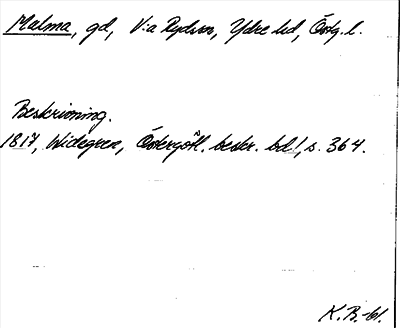 Malma, gd, V:a Ryds sn, Ydre hd, Östg. l.
Beskrivning.
1817, Widegren, Östergötl. beskr. bd 1, s. 364.
K. B. -61.